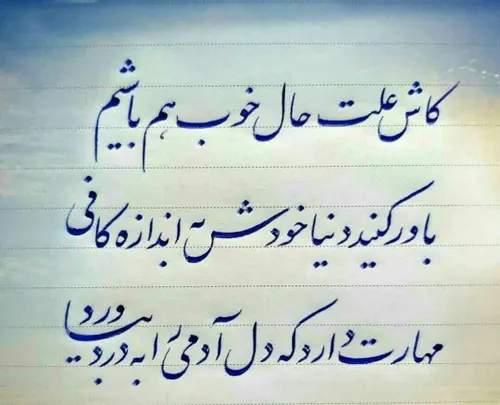 کاش علت حال خوب هم باشیم
باور کنید دنیا خودش به اندازه کافی
مهارت دارد که دل آدمی را به درد بیاورد